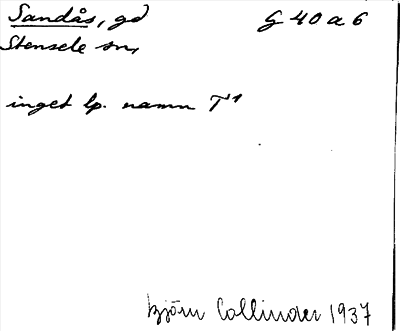 Sandås, gd G 40 a 6
Stensele sn,
inget lp. namn T¹
Björn Collinder 1937